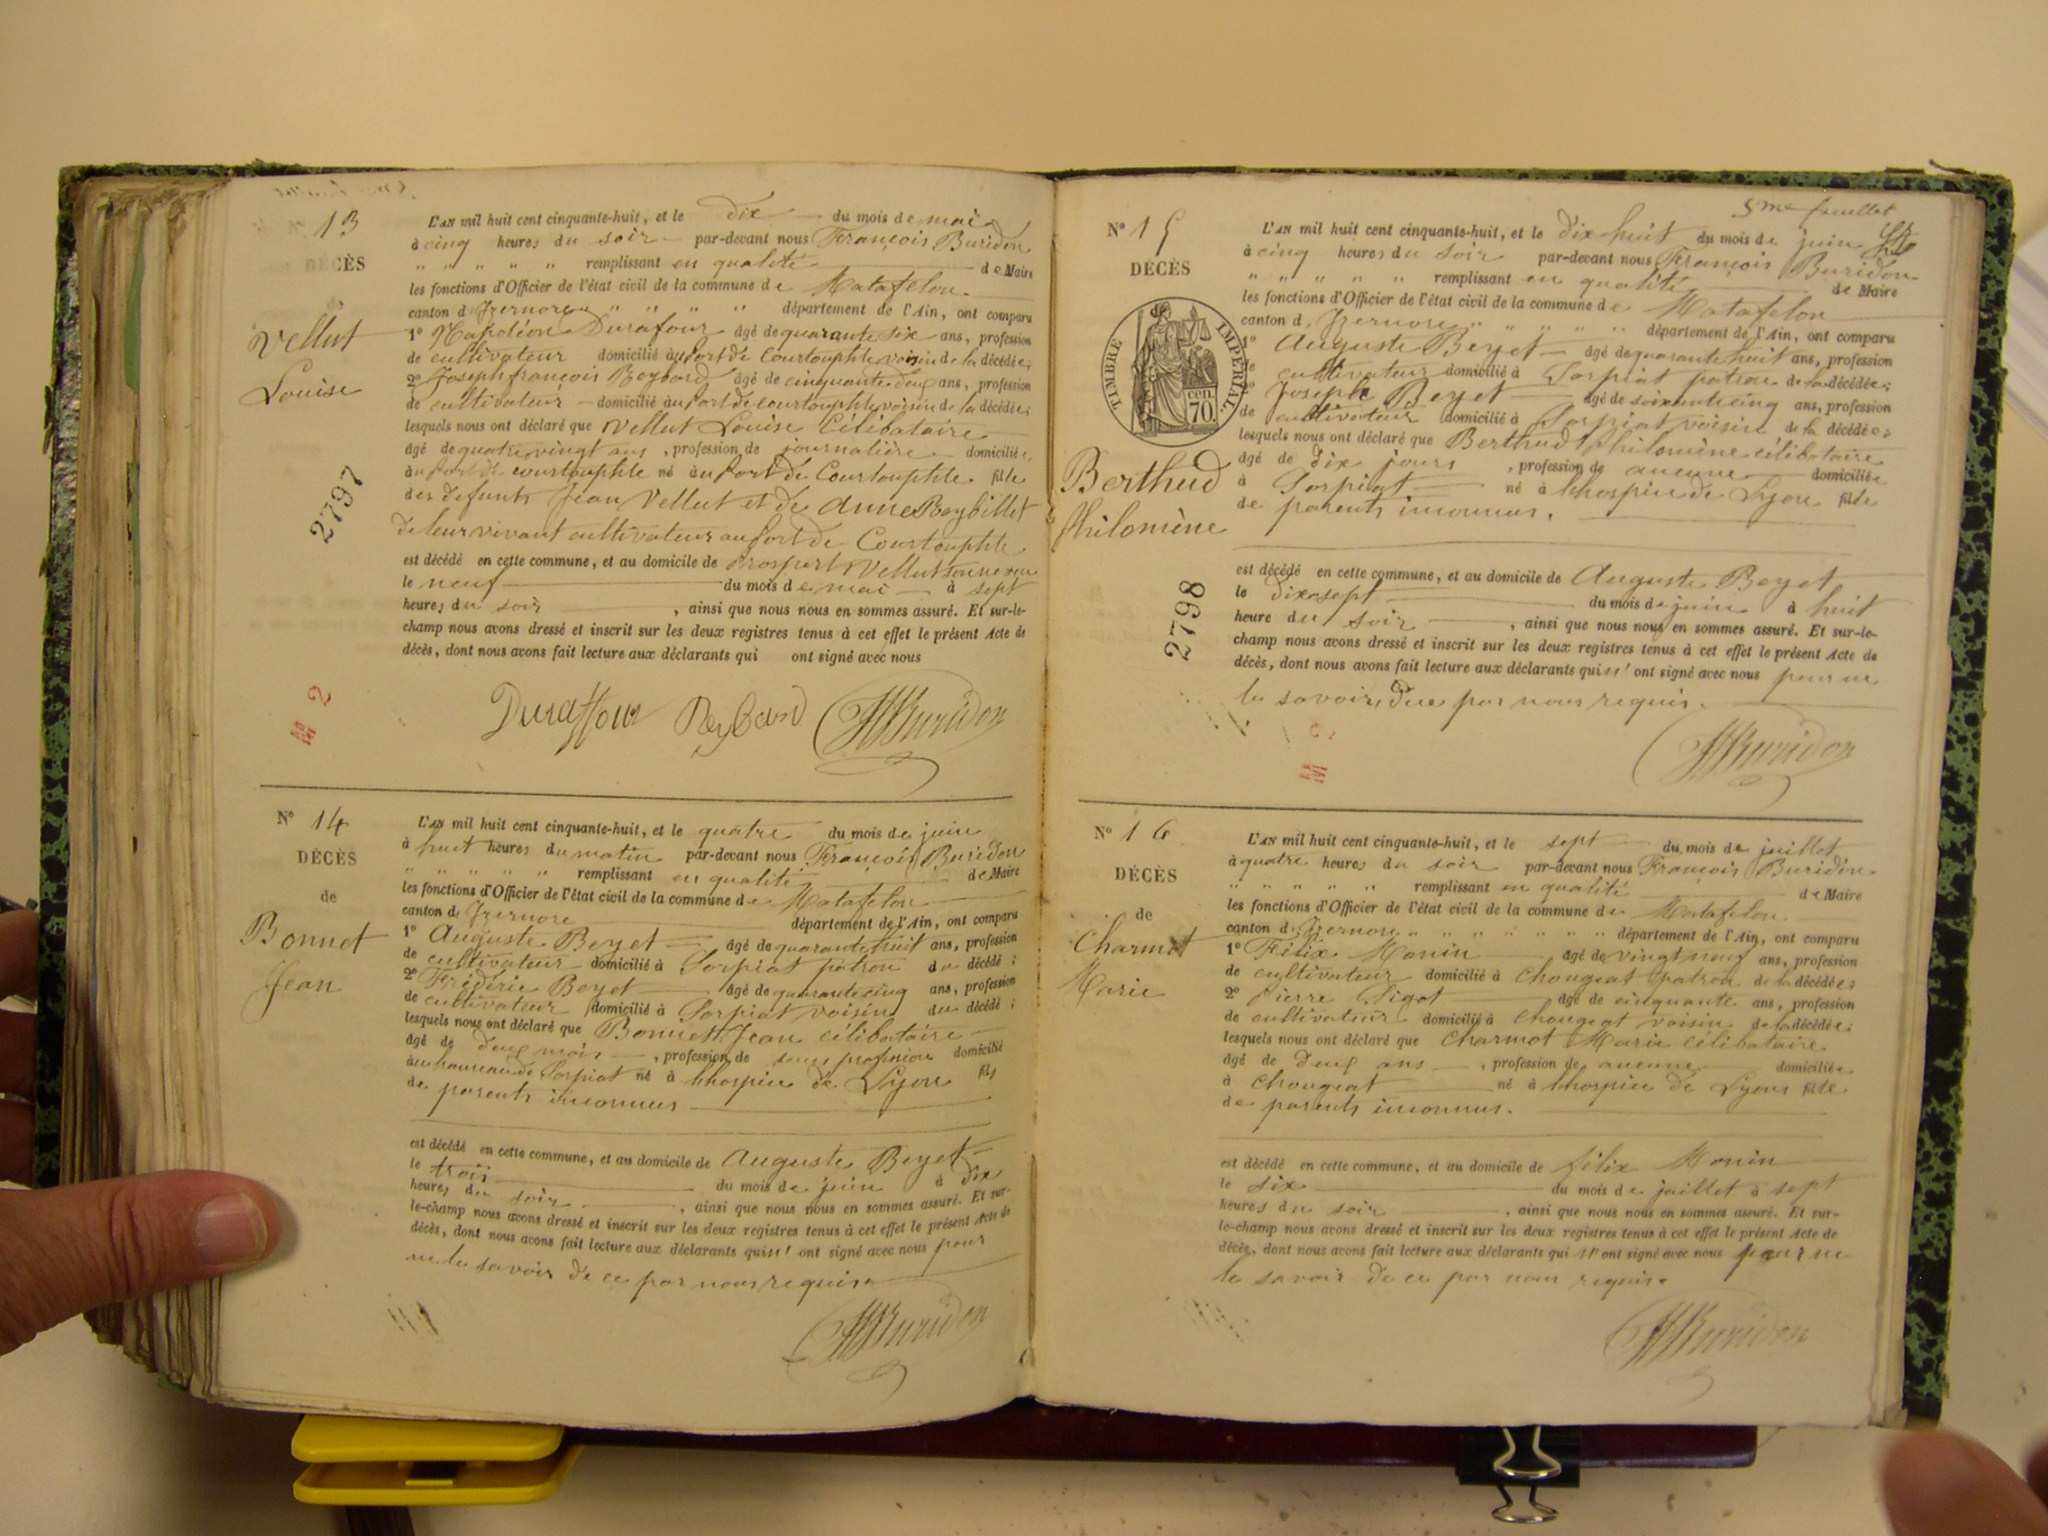 13
L'AN mil huit cent cinquante-huit, et le dix du mois de mai
à cinq heures du soir par-devant nous François Buridon
DÉCÈS
" " " " " remplissant en qualité de Maire
les fonctions d'Officier de l'état civil de la commune de Matafelon
canton d'Izernore " " " " département de l'Ain, ont comparu
Vellut
Louise
1° Napoléon Durafour âgé de quarante six ans, profession
de cultivateur domicilié au port de Courtouphle voisin de la décédée;
2° Joseph françois Reybard âgé de cinquante deux ans, profession
de cultivateur domicilié au port de courtouphle voisin de la décédée;
lesquels nous ont déclaré que Vellut Louise Célibataire
âgé de quatre vingt ans, profession de journalière domiciliée
au port de courtouphle né au port de Courtouphle fille
des defunts Jean Vellut et de Anne Reybillet
de leur vivant cultivateur au port de Courtouphle
2797
est décédé en cette commune, et au domicile de Prospert Vellut son neveu
le neuf du mois de mai à sept
heures du soir, ainsi que nous nous en sommes assuré. Et sur-le-
champ nous avons dressé et inscrit sur les deux registres tenus à cet effet le présent Acte de
décès, dont nous avons fait lecture aux déclarants qui ont signé avec nous
M 2
Duraffour Reybard Buridon
N° 14
DÉCÈS
de
Bonnet
Jean
L'AN mil huit cent cinquante-huit, et le quatre du mois de juin
à huit heures du matin par-devant nous François Buridon
" " " " " remplissant en qualité de Maire
les fonctions d'Officier de l'état civil de la commune de Matafelon
canton d'Izernore département de l'Ain, ont comparu
1° Auguste Beyet âgé de quarante huit ans, profession
de cultivateur domicilié à Sorpiat patron du décédé;
2° Frédéric Beyet âgé de quarante cinq ans, profession
de cultivateur domicilié à Sorpiat voisin du décédé;
lesquels nous ont déclaré que Bonnet Jean célibataire
âgé de deux mois, profession de sans profession domicilié
au hameau de Sorpiat né à l'hospice de Lyon fils
de parents inconnus
est décédé en cette commune, et au domicile de Auguste Beyet
le trois du mois de juin à dix
heures du soir, ainsi que nous nous en sommes assuré. Et sur-
le-champ nous avons dressé et inscrit sur les deux registres tenus à cet effet le présent Acte de
décès, dont nous avons fait lecture aux déclarants qui n'ont signé avec nous pour
ne le savoir de ce par nous requis.
Buridon
5me feuillet
N° 15
DÉCÈS
TIMBRE IMPÉRIAL
70 cen.
Berthud
Philomène
2798
L'AN mil huit cent cinquante-huit, et le dix huit du mois de juin
à cinq heures du soir par-devant nous François Buridon
" " " " " remplissant en qualité de Maire
les fonctions d'Officier de l'état civil de la commune de Matafelon
canton d'Izernore " " " " " département de l'Ain, ont comparu
1° Auguste Beyet âgé de quarante huit ans, profession
de cultivateur domicilié à Sorpiat patron de la décédée;
2° Joseph Beyet âgé de soixante cinq ans, profession
de cultivateur domicilié à Sorpiat voisin de la décédée;
lesquels nous ont déclaré que Berthud Philomène célibataire
âgé de dix jours, profession de aucune domiciliée
à Sorpiat né à l'hospice de Lyon fille
de parents inconnus.
est décédé en cette commune, et au domicile de Auguste Beyet
le dix sept du mois de juin à huit
heure du soir, ainsi que nous nous en sommes assuré. Et sur-le-
champ nous avons dressé et inscrit sur les deux registres tenus à cet effet le présent Acte de
décès, dont nous avons fait lecture aux déclarants qui n'ont signé avec nous pour ne
le savoir de ce par nous requis.
M
Buridon
N° 16
DÉCÈS
de
Charmot
Marie
L'AN mil huit cent cinquante-huit, et le sept du mois de juillet
à quatre heures du soir par-devant nous François Buridon
" " " " " remplissant en qualité de Maire
les fonctions d'Officier de l'état civil de la commune de Matafelon
canton d'Izernore " " " " " " " département de l'Ain, ont comparu
1° Félix Monin âgé de vingt neuf ans, profession
de cultivateur domicilié à Chougeat patron de la décédée;
2° Pierre Pigot âgé de cinquante ans, profession
de cultivateur domicilié à Chougeat voisin de la décédée;
lesquels nous ont déclaré que Charmot Marie célibataire
âgé de deux ans, profession de aucune domiciliée
à Chougeat né à l'hospice de Lyon fille
de parents inconnus.
est décédé en cette commune, et au domicile de félix Monin
le six du mois de juillet à sept
heures du soir, ainsi que nous nous en sommes assuré. Et sur-
le-champ nous avons dressé et inscrit sur les deux registres tenus à cet effet le présent Acte de
décès, dont nous avons fait lecture aux déclarants qui n'ont signé avec nous pour ne
le savoir de ce par nous requis.
Buridon